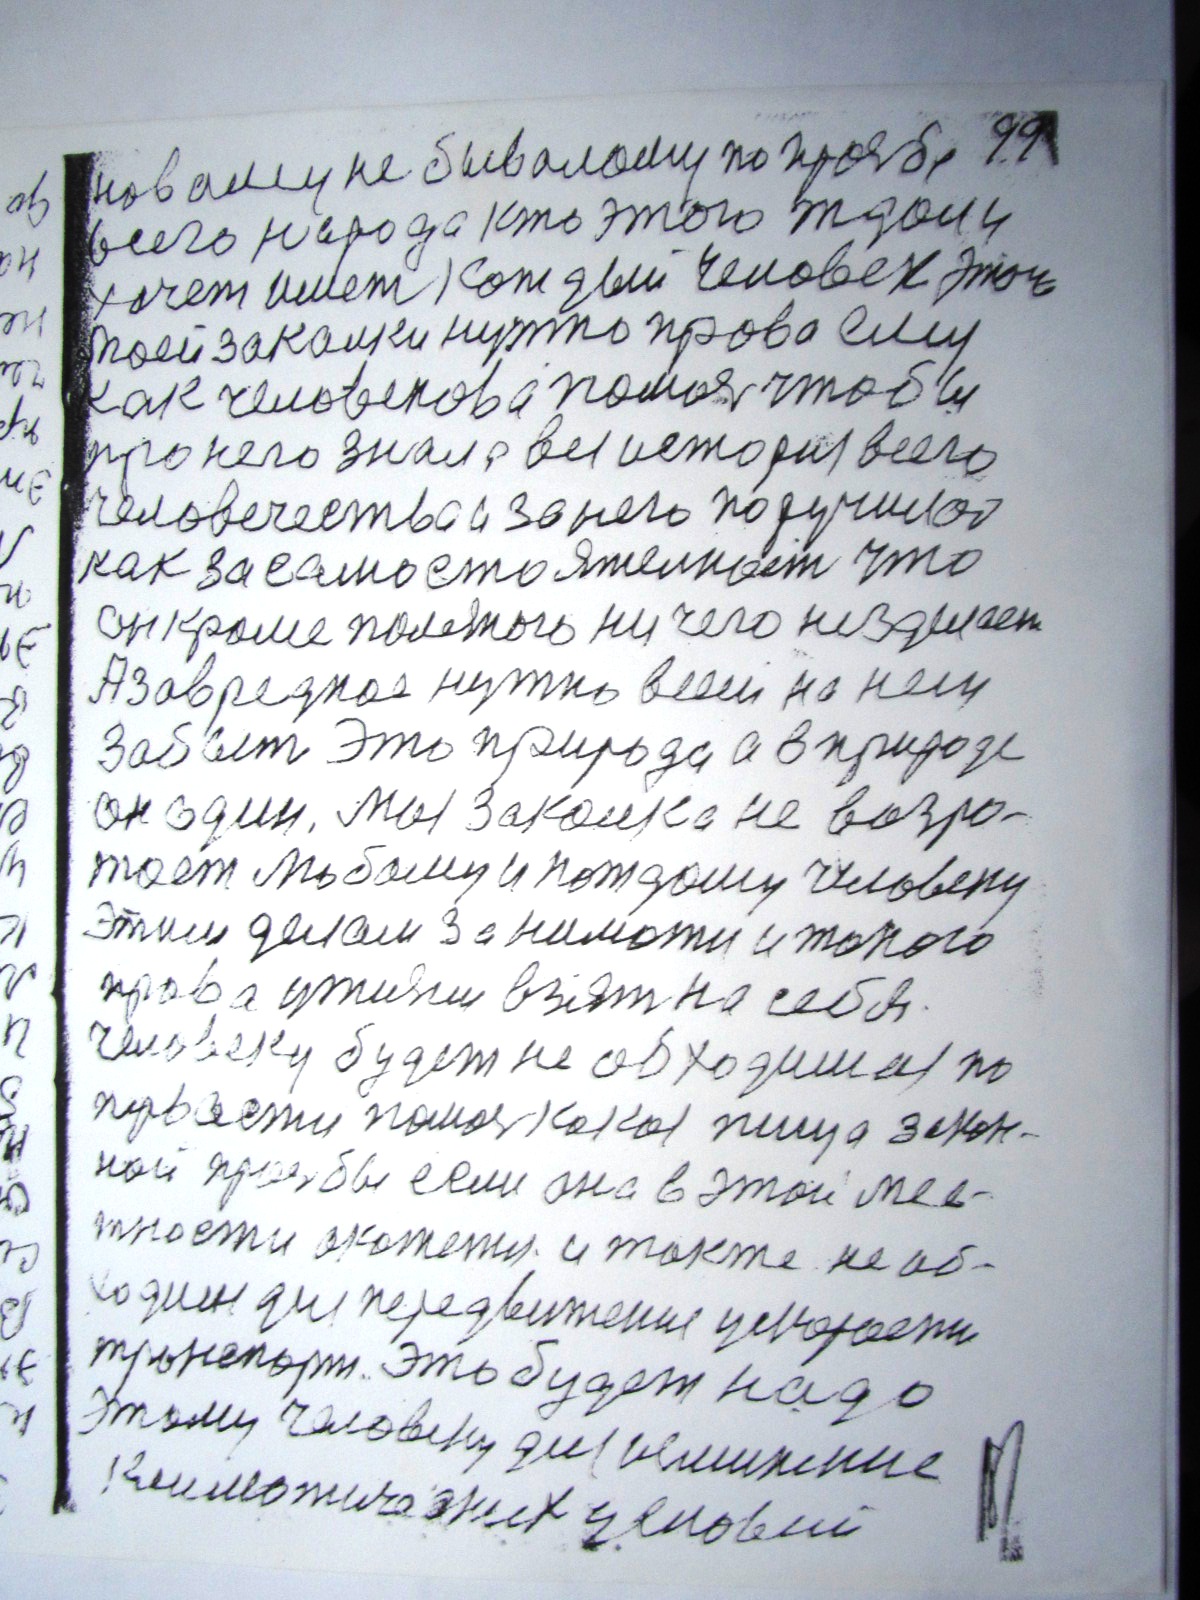 99
новаму не бывалому по прозьбе
всего народа кто этого ждал и
хочет имет каждый человек этой
моей закалки нужно права ему
как человекова помоч чтобы
про него знала вся история всего
человечества и за него поручилас
как за самостоятелност что
он кроме полезного ничего не зделает
А завредное нужно всем на нем
забыт Это природа а в природе
он один, Моя закалка не возро-
жает любому и каждому человеку
этим делам заниматы и такого
права ужизни взят на себя.
Человеку будет не обходимая по
первости помоч какая пища закон-
ной прозьбы если она в этой мес-
тности окажетя. и также не об-
ходим для передвижение ускорости
транспорт. Это будет надо
Этому человеку для
климатических условий